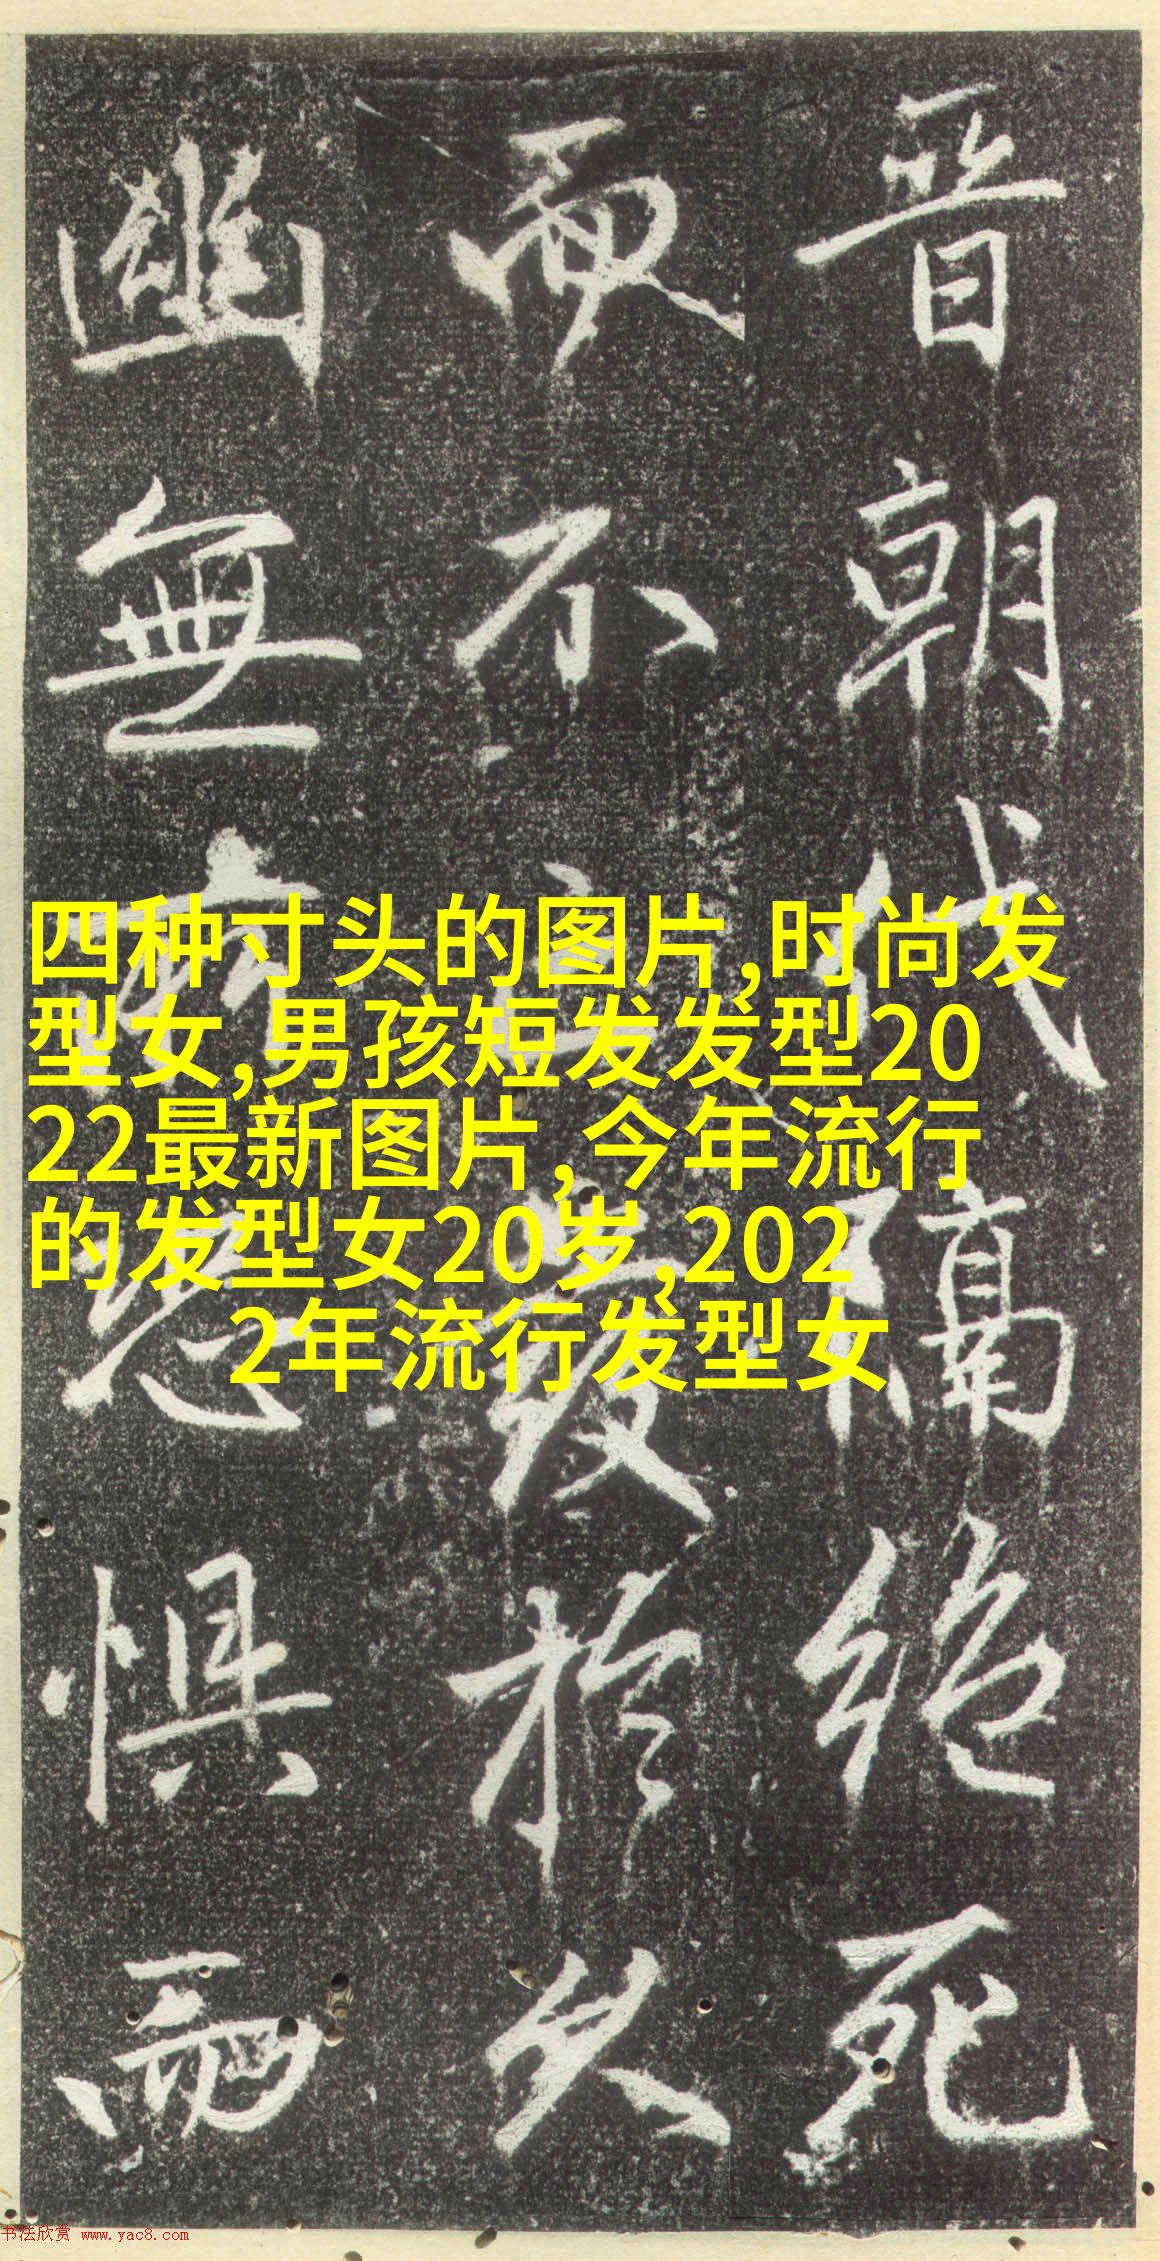 晋朝代隔絶死
而不於久
幽無懼
四种寸头的图片,时尚发
型女,男孩短发发型20
22最新图片,今年流行
的发型女20岁,202
2年流行发型女
书法欣赏 www.yac8.com